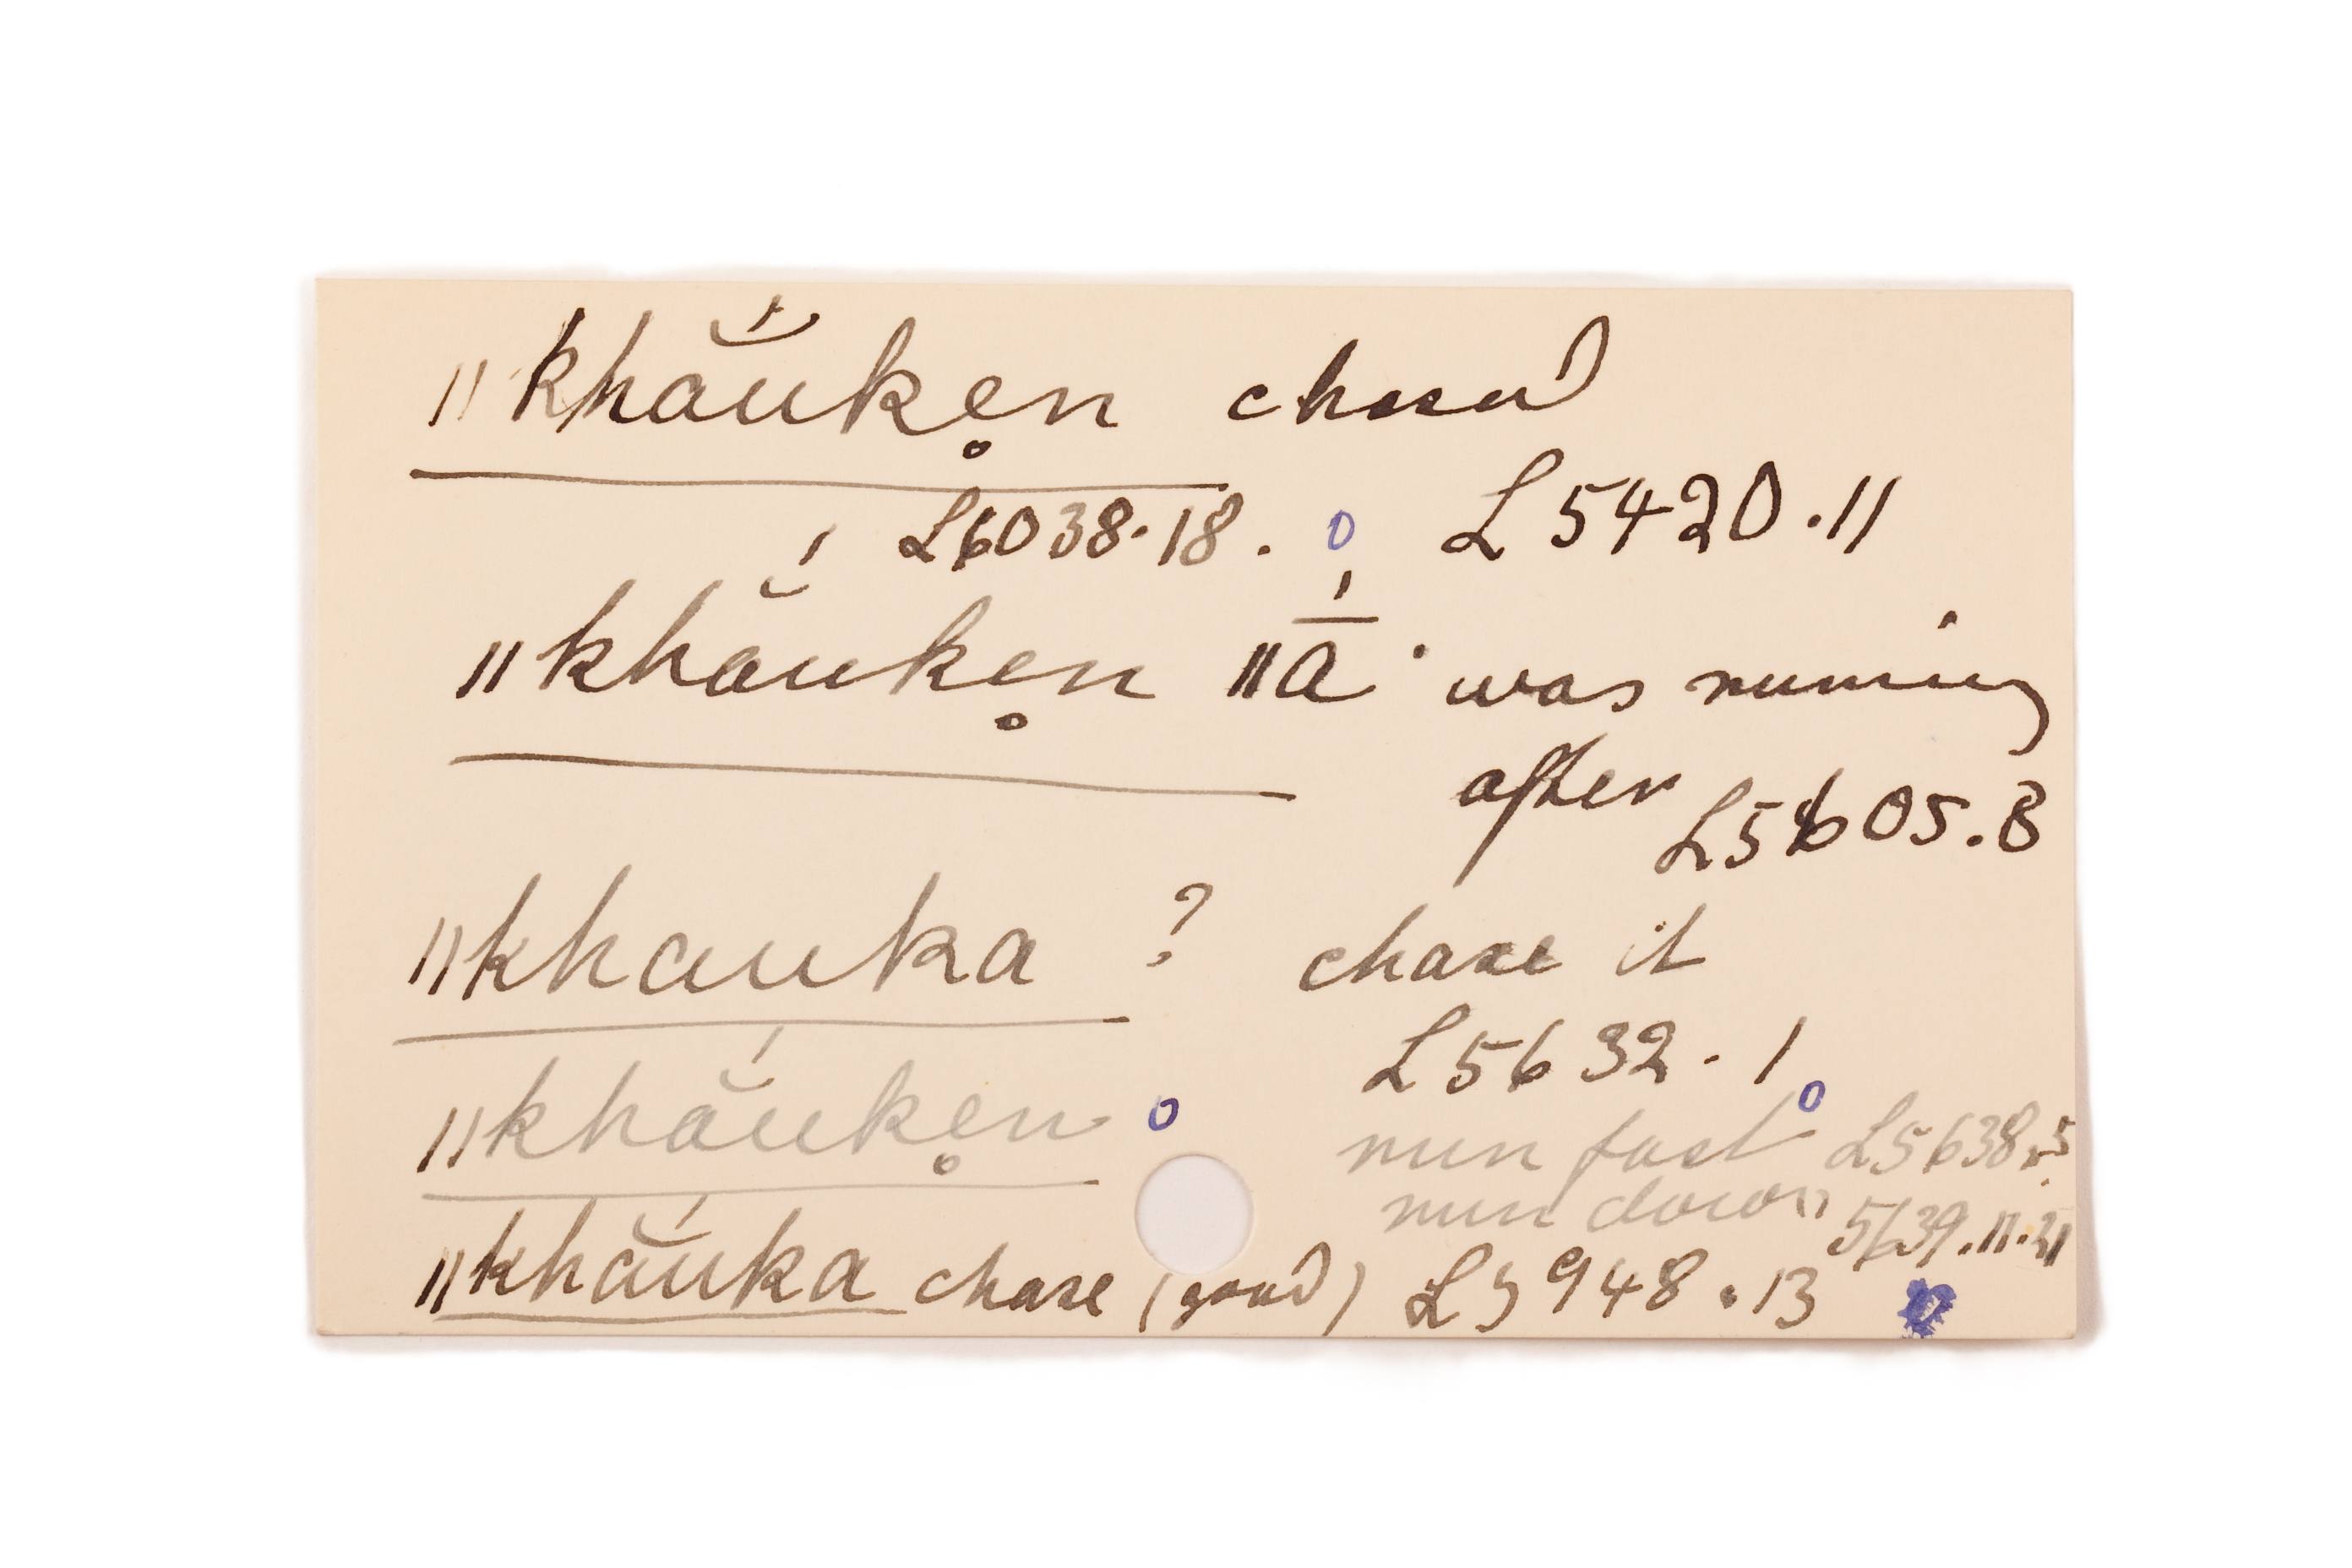 ǁkhắukẹn chased
L6038.18. 0 L5420.11
ǁkhắukẹn ǁā́ was running
after L5605.8
ǁkhauka ? chase it
L5632.1
ǁkhắukẹn 0 run fast 0 L5638.5
run down 5639.11.21
ǁkhắuka chase (good) L5948.13